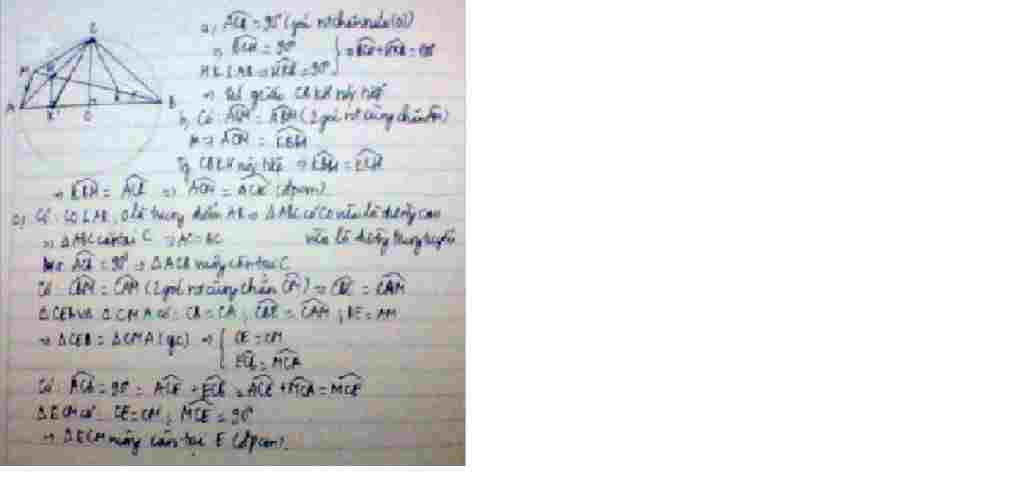 C
M
H
A
K
O
E
B
a) ACB = 90° (góc nt chắn nửa (O))
⇒ BCH = 90°
HK ⊥ AB ⇒ HKB = 90° } ⇒ BCH + HKB = 180°
⇒ tứ giác CBKH nội tiếp
b, Có: ACM = ABM (2 góc nt cùng chắn AM)
⇒ ACM = KBH
Tg CBKH nội tiếp ⇒ KBH = KCH
⇒ KBH = ACK ⇒ ACM = ACK (đpcm)
c) Có: CO ⊥ AB, O là trung điểm AB ⇒ ΔABC có CO vừa là đường cao
vừa là đường trung tuyến
⇒ ΔABC cân tại C ⇒ AC = BC
Mà ACB = 90° ⇒ ΔACB vuông cân tại C
Có: CBM = CAM (2 góc nt cùng chắn CM) ⇒ CBE = CAM
ΔCEB và ΔCMA có: CB = CA; CBE = CAM; BE = AM
⇒ ΔCEB = ΔCMA (cgc) ⇒ { CE = CM
ECB = MCA
Có: ACB = 90° = ACE + ECB = ACE + MCA = MCE
ΔECM có: CE = CM; MCE = 90°
⇒ ΔECM vuông cân tại E (đpcm).